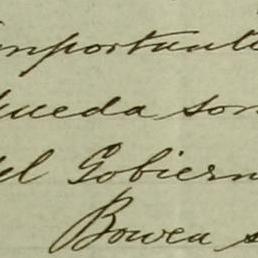 importante
queda son
del Gobiern
Bowen s